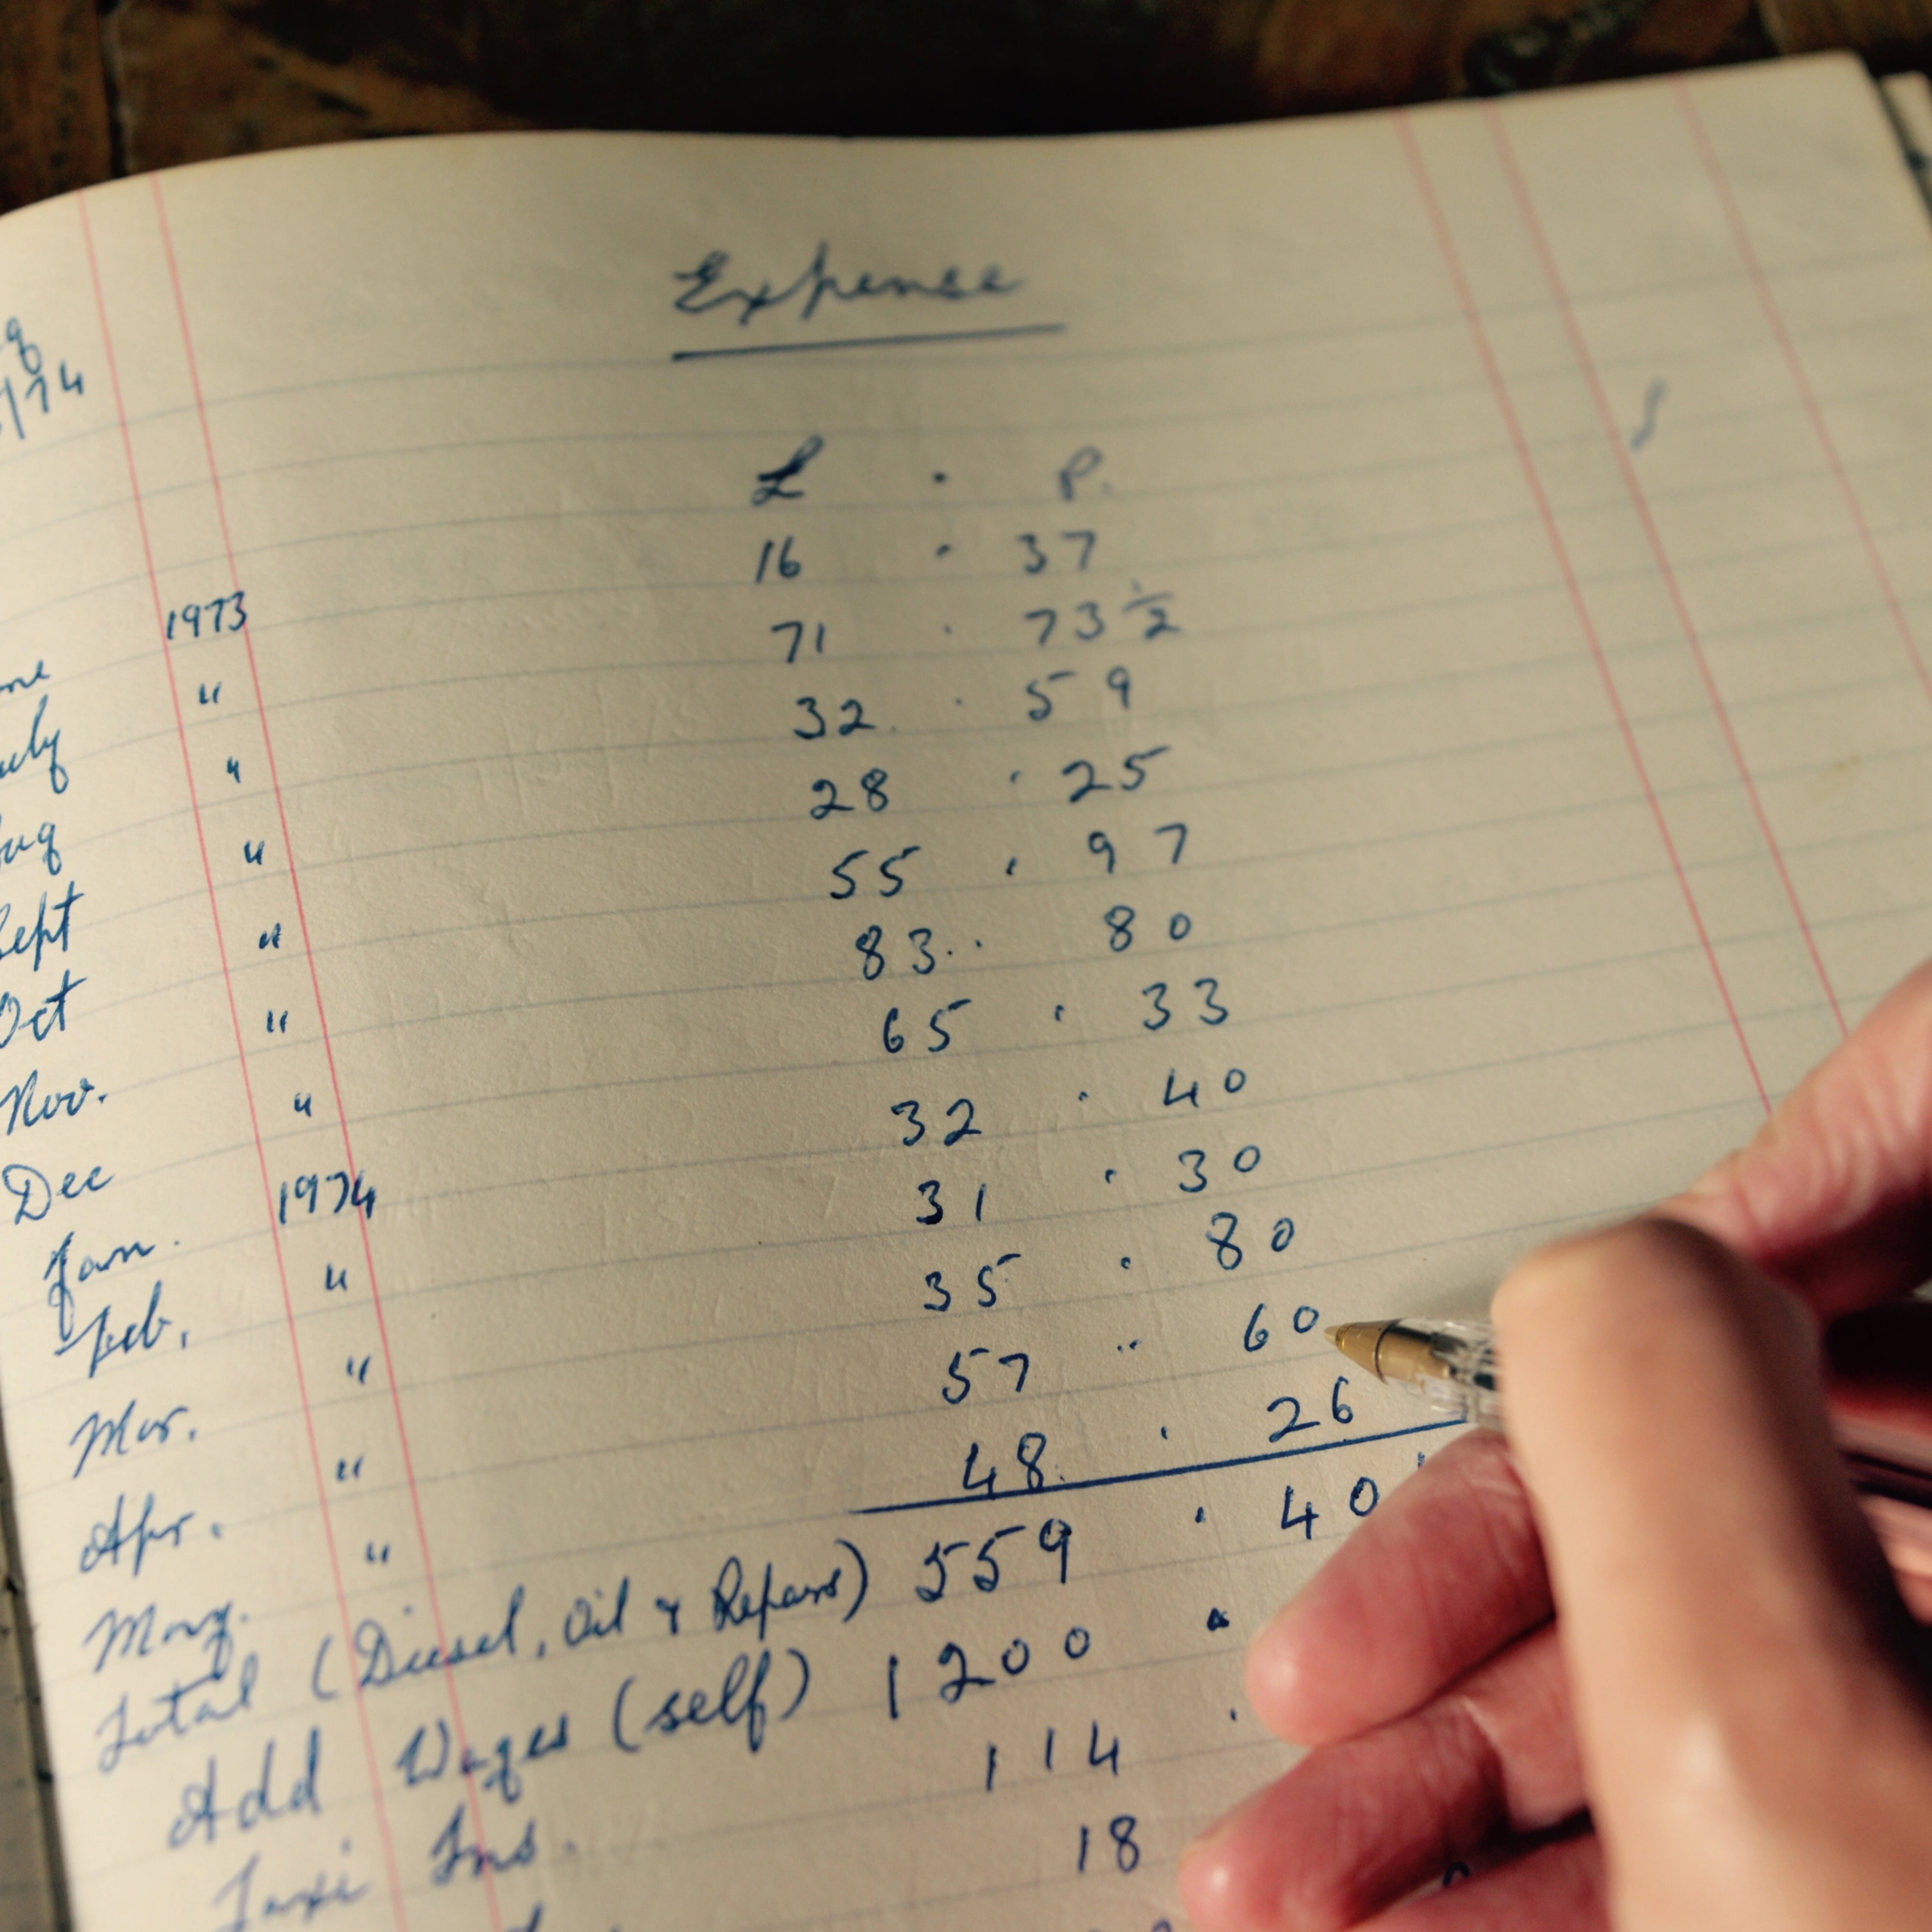 Expense
g
/74
£ . P.
ne 1973 16 . 37
uly " 71 . 73½
Aug " 32 . 59
Sept " 28 . 25
Oct " 55 . 97
Nov. " 83 . 80
Dec " 65 . 33
Jan. 1974 32 . 40
Feb. " 31 . 30
Mar. " 35 . 80
Apr. " 57 . 60
May. " 48 . 26
Total (Diesel, Oil & Repairs) 559 . 40
Add Wages (self) 1200 .
Taxi Ins. 114 .
18